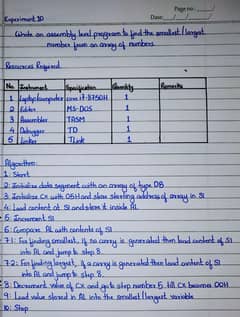 Page no.:
Date:
Experiment 10
Write an assembly level program to find the smallest / largest
number from an array of numbers.
Resources Required
No. Instrument Specification Quantity Remarks
1 Laptop/computer core i7-8750H 1
2 Editor MS-DOS 1
3 Assembler TASM 1
4 Debugger TD 1
5 Linker TLink 1
Algorithm:
1: Start
2: Initialize data segment with an array of type DB
3: Initialize CX with 05H and store starting address of array in SI
4: Load content at SI and store it inside AL
5: Increment SI
6: Compare AL with contents of SI
7.1: For finding smallest, if no carry is generated then load content of SI
into AL and jump to step 8.
7.2: For finding largest, if a carry is generated then load content of SI
into AL and jump to step 8.
8: Decrement value of CX and go to step number 5 till CX becomes 00H
9: Load value stored in AL into the smallest / largest variable
10: Stop